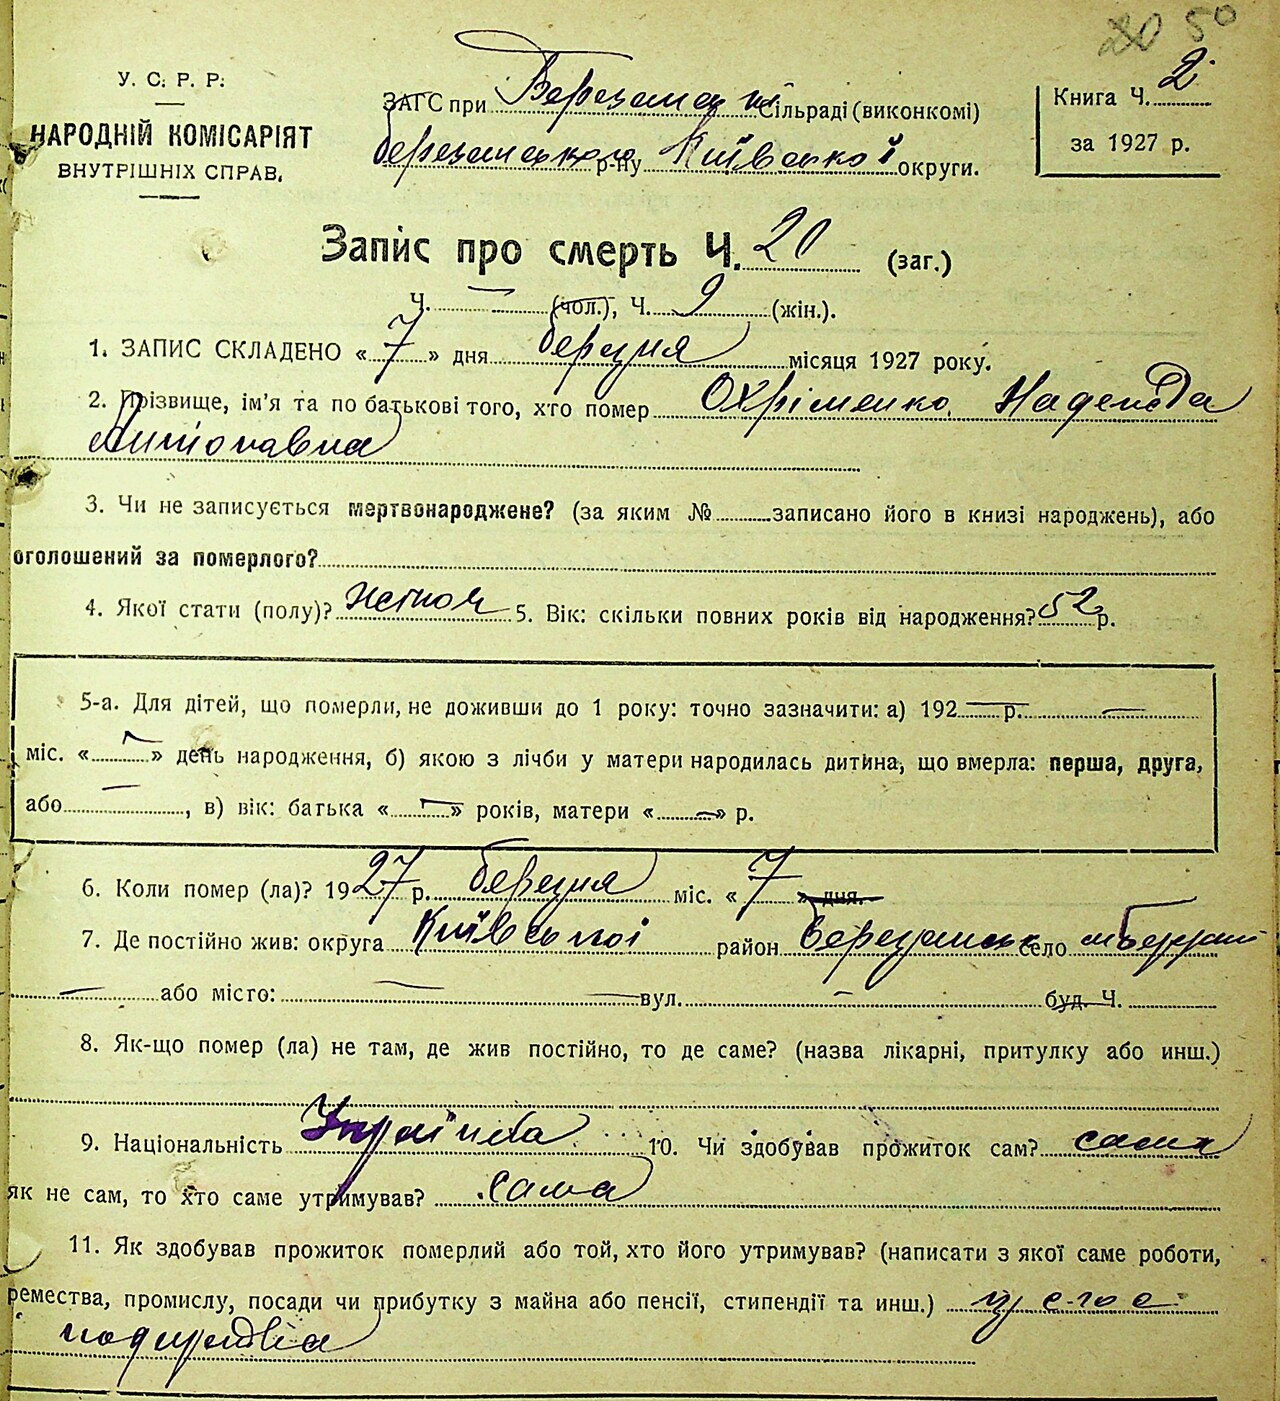 20 50
У. С. Р. Р.
НАРОДНІЙ КОМІСАРІЯТ
ВНУТРІШНІХ СПРАВ.
ЗАГС при Березанській Сільраді (виконкомі)
Березанського р-ну Київської округи.
Книга Ч. 2
за 1927 р.
Запис про смерть Ч. 20 (заг.)
Ч. — (чол.), Ч. 9 (жін.).
1. ЗАПИС СКЛАДЕНО « 7 » дня березня місяця 1927 року.
2. Прізвище, ім'я та по батькові того, хто помер Охріменко Надежда
Антонавна
3. Чи не записується мертвонароджене? (за яким № записано його в книзі народжень), або
оголошений за померлого?
4. Якої стати (полу)? жіноч 5. Вік: скільки повних років від народження? 52 р.
5-а. Для дітей, що померли, не доживши до 1 року: точно зазначити: а) 192 — р. —
міс. « — » день народження, б) якою з лічби у матери народилась дитина, що вмерла: перша, друга,
або —, в) вік: батька « — » років, матери « — » р.
6. Коли помер (ла)? 1927 р. березня міс. « 7 » дня.
7. Де постійно жив: округа Київської район Березанськ село м Березані
— або місто: — вул. — буд. Ч.
8. Як-що помер (ла) не там, де жив постійно, то де саме? (назва лікарні, притулку або инш.)
9. Національність Українка 10. Чи здобував прожиток сам? сама
як не сам, то хто саме утримував? сама
11. Як здобував прожиток померлий або той, хто його утримував? (написати з якої саме роботи,
ремества, промислу, посади чи прибутку з майна або пенсії, стипендії та инш.)